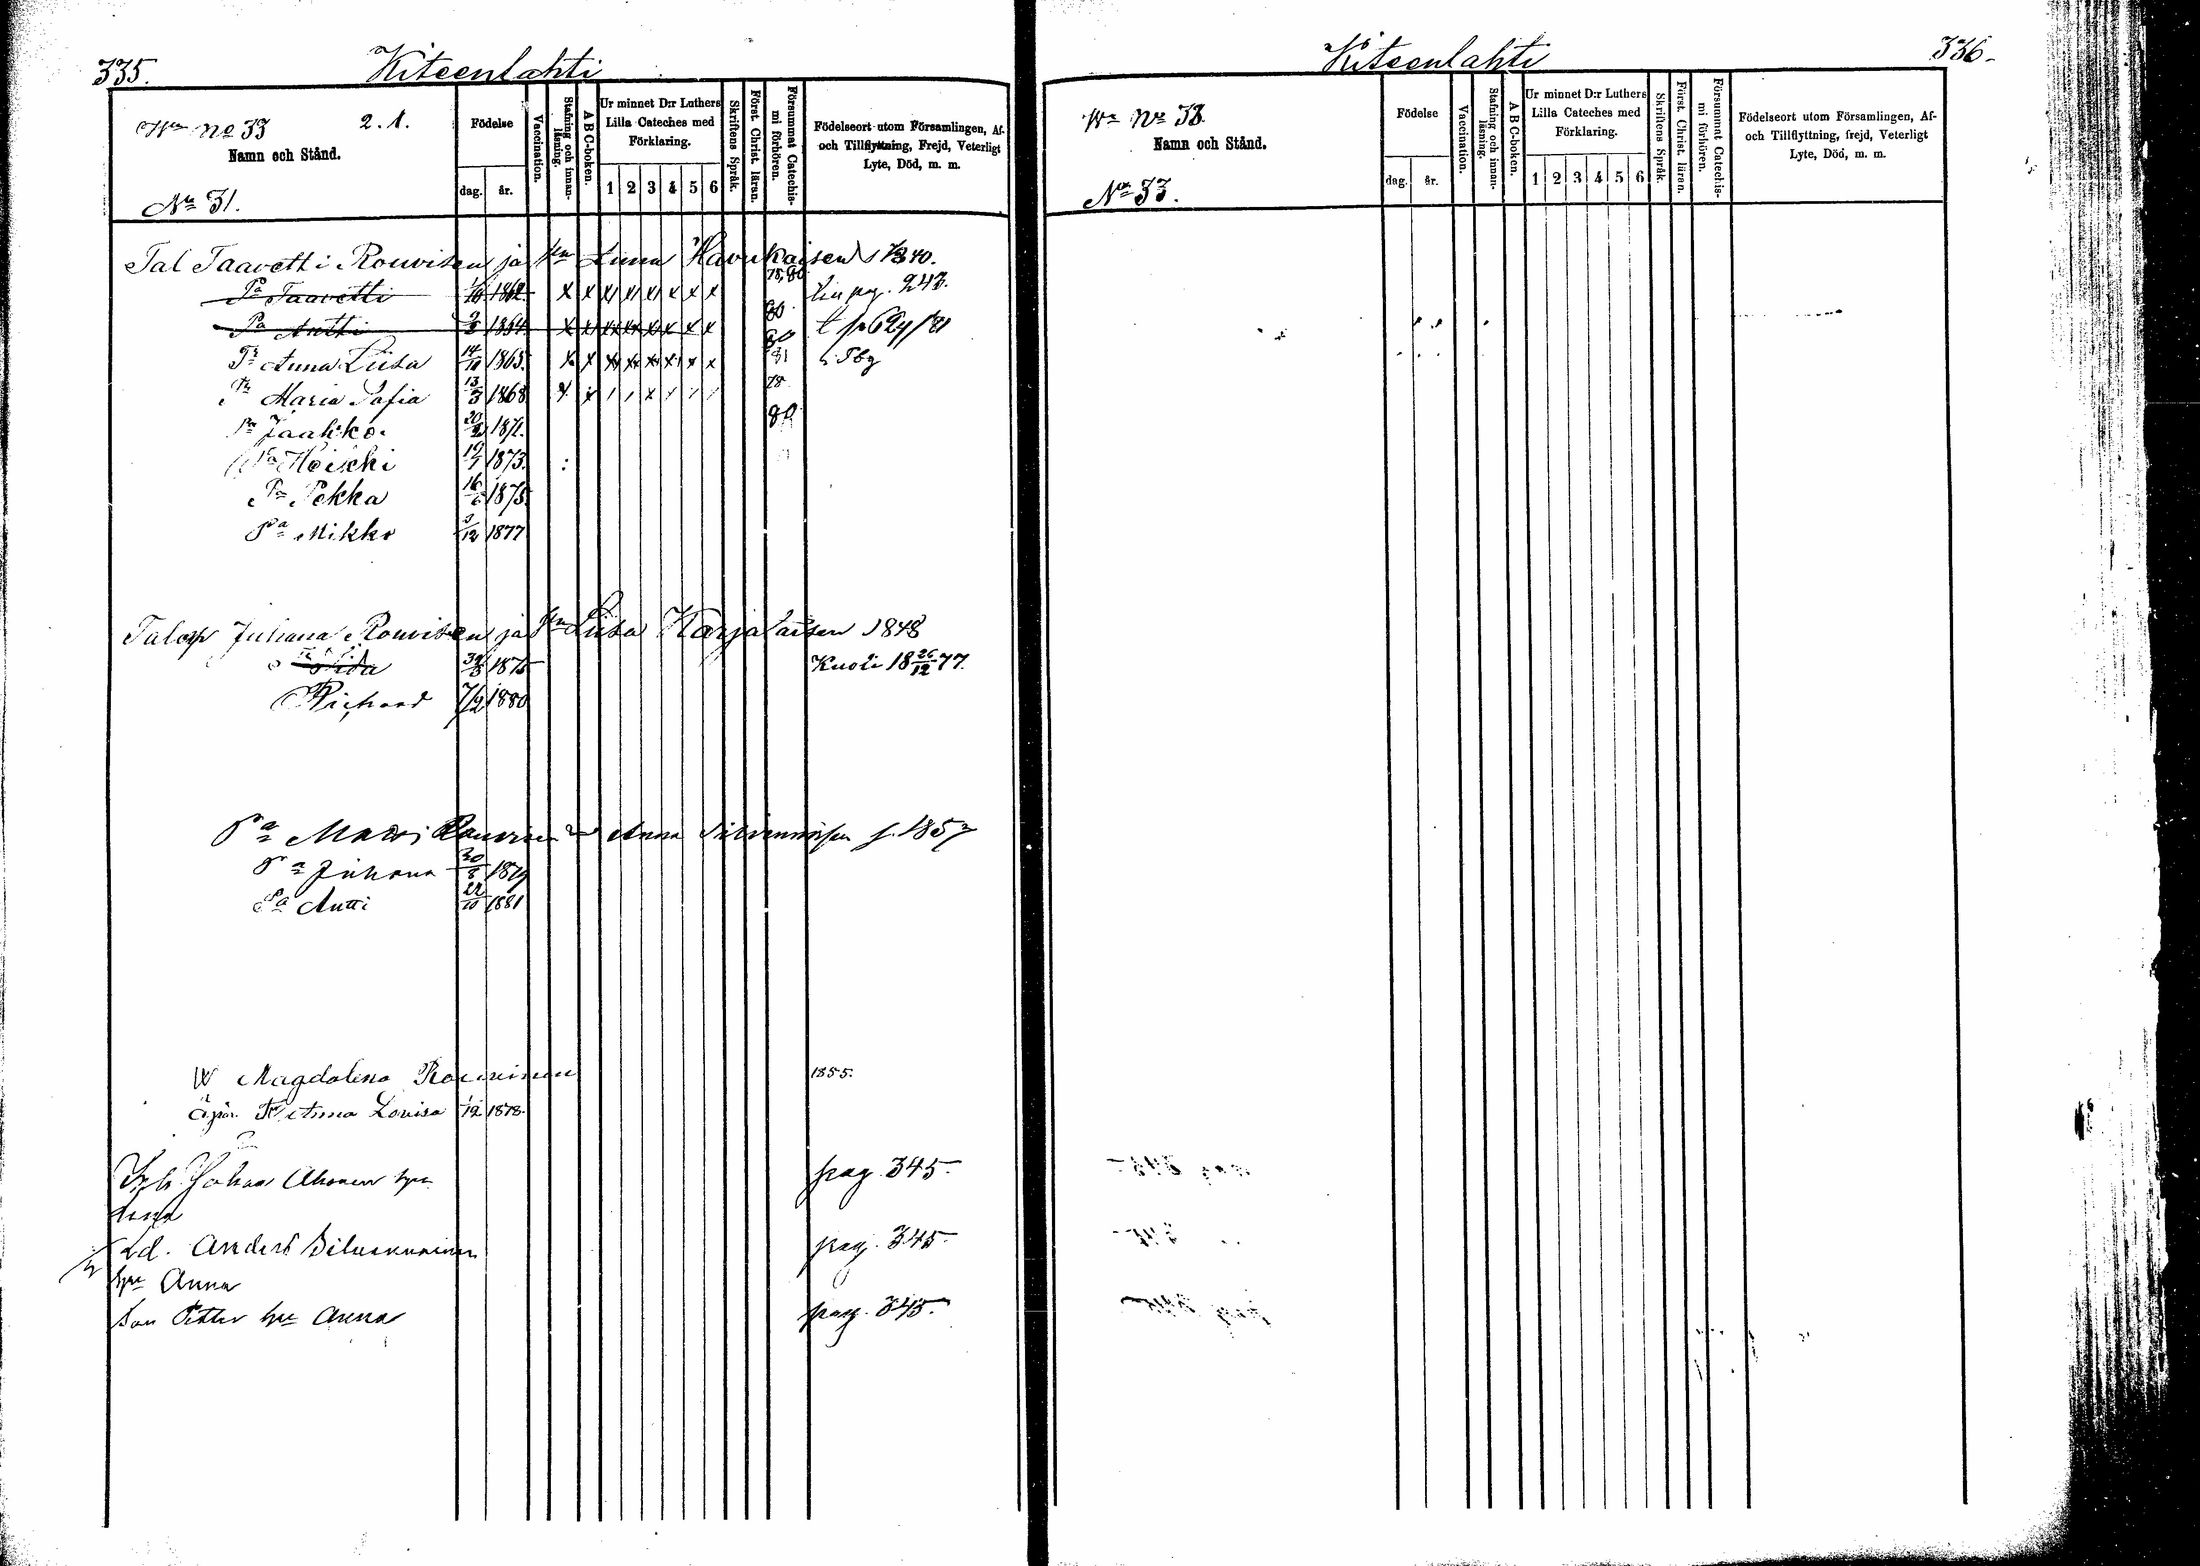 335.
Kiteenlahti
Wn No 33 2.1.
Namn och Stånd.
No 31.
Födelse
dag. år.
Vaccination.
Stafning och innan-läsning.
ABC-boken.
Ur minnet D:r Luthers Lilla Cateches med Förklaring.
1 2 3 4 5 6
Skriftens Språk.
Först. Christ. läran.
Försummat Catechismi förhören.
Födelseort utom Församlingen, Af- och Tillflyttning, Frejd, Veterligt Lyte, Död, m. m.
Tal Taavetti Rouvisen ja Liisa Havukaisen 1840.
Pa Taavetti 1862 x x x x x x x x 78,80 pag. 243.
Pa Antti 1854 x x x x x x x x 80
Tr Anna Liisa 14/10 1865. x x x x x x x x 80 81
Tr Maria Sofia 13/3 1868 78
Pa Jaakko 20/2 1871. 80
Pa Heikki 19/7 1873.
Pa Pekka 16/6 1875.
Pa Mikko 3/12 1877
Juhana Rouvisen ja Liisa Karjalaisen 1848
Iida 1875 Kuoli 18 26/12 77.
Richard 7/2 1880
Pa Anna 1857
Pa Juhana 20/8 1879
Pa Antti 22/10 1881
W Magdalena Rouvinen 1855.
Tr Anna Lovisa 1/12 1878.
Johan Ahonen hu pag. 345.
Anna
Ld. Anders pag. 345.
hu Anna
Son Petter hu Anna pag. 345.
Kiteenlahti
336.
Wn No 33.
Namn och Stånd.
No 33.
Födelse
dag. år.
Vaccination.
Stafning och innan-läsning.
ABC-boken.
Ur minnet D:r Luthers Lilla Cateches med Förklaring.
1 2 3 4 5 6
Skriftens Språk.
Först. Christ. läran.
Försummat Catechismi förhören.
Födelseort utom Församlingen, Af- och Tillflyttning, frejd, Veterligt Lyte, Död, m. m.